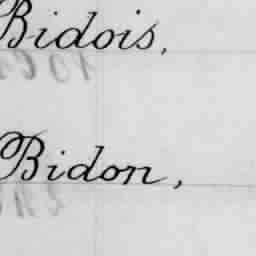 Bidois,
Bidon,